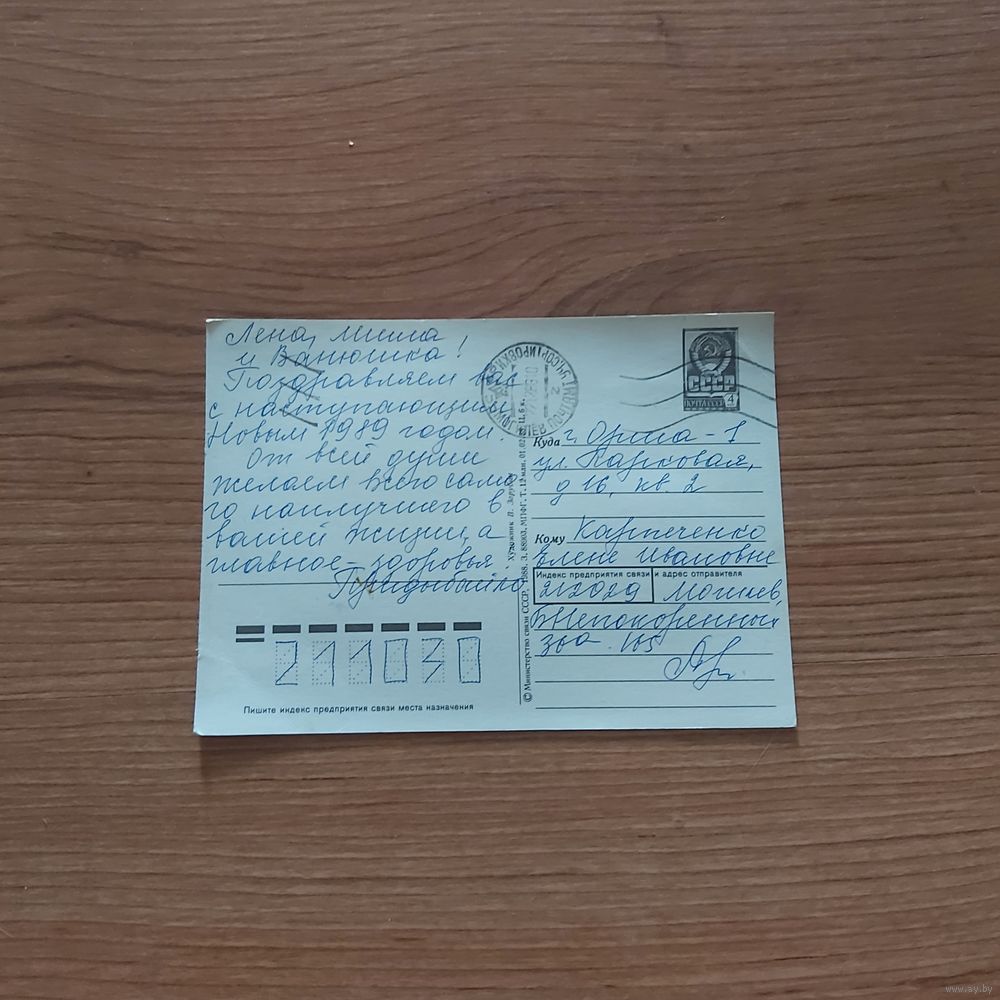 Лена, Миша
и Ванюшка!
Поздравляем вас
с наступающим
Новым 1989 годом.
От всей души
желаем всего само
го наилучшего в
вашей жизни, а
главное – здоровья
211030
Пишите индекс предприятия связи места назначения
© Министерство связи СССР, 1988. З. 88003. МПФГ. Т. 12 млн.
Художник
СССР
ПОЧТА СССР 4
Куда г. Орша - 1
ул. Парковая,
д 16, кв. 2
Кому Карпеченко
Елене Ивановне
Индекс предприятия связи и адрес отправителя
212029 Могилев,
Непокоренных
105
www.ay.by